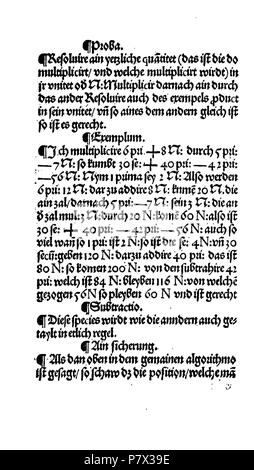 ¶Proba.
¶Resoluire ain yetzliche quātitet (das ist die do
multiplicirt / vnd welche multiplicirt wirdt) in
jr vnitet oď N: Multiplicir darnach ain durch
das ander Resoluire auch des exempels ꝓduct
in sein vnitet / vñ so aines dem andern gleich ist
so ist es gerecht.
¶Exemplum.
¶Ich multiplicire 6 pri: + 8 N: durch 5 pri:
— 7 N: so kumbt 30 se: + 40 pri: — 42 pri:
— 56 N: Nym 1 prima sey 2 N: Also werden
6 pri: 12 N: dar zu addire 8 N: kumē 20 N: die
ain zal / darnach 5 pri: — 7 N: sein 3 N: die an
ď zal mul: 3 N: durch 20 N: komē 60 N: also ist
30 se: + 40 pri: — 42 pri: — 56 N: auch so
vil wañ so 1 pri: ist 2 N: so ist die se: 4 N: vñ 30
secū: geben 120 N: darzu addire 40 pri: das ist
80 N: so komen 200 N: von den subtrahire 42
pri: welch ist 84 N: bleyben 116 N: von welchē
gezogen 56 N so pleyben 60 N vnd ist gerecht
¶Subtractio.
¶Diese species wirdt wie die anndern auch ge⸗
taylt in etlich regel.
¶Ain sicherung.
¶Als dan oben in dem gemainen algorithmo
ist gesagt / so schaw dz die position / welche mā
alamy
P7X39E